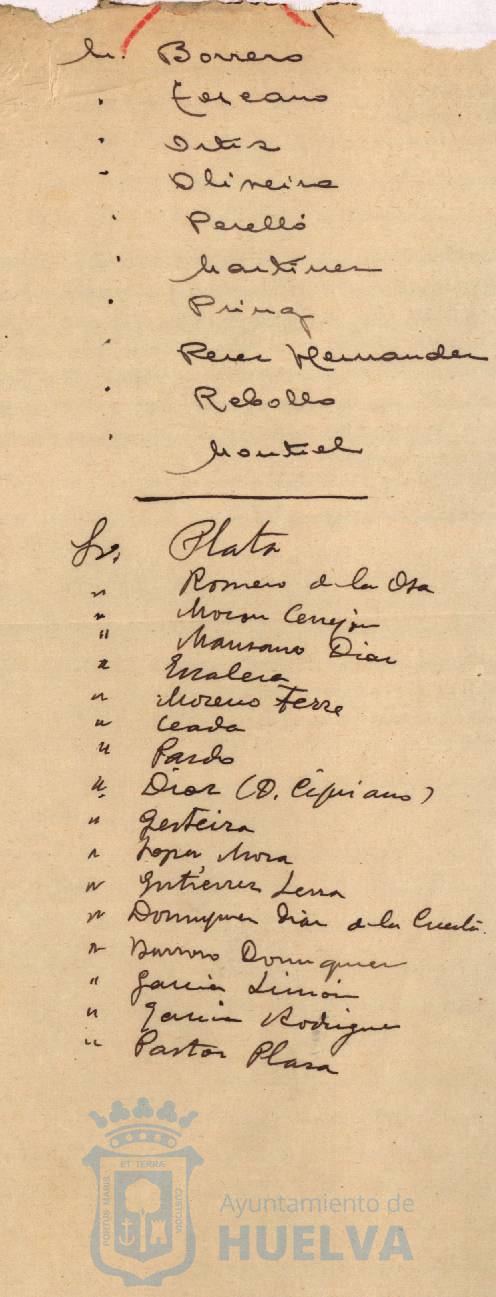 Sr. Borrero
" Toscano
" Ortiz
" Oliveira
" Perelló
" Martinez
"
" Perez Hernandez
" Rebollo
" Montiel
Sr. Plata
" Romero de la Osa
" Moron Cerrejón
" Manzano Diaz
" Escalera
" Moreno Ferre
" Ceada
" Pardo
" Diaz (D. Cipriano)
" Gesteira
" Lopez Mora
" Gutiérrez Serra
" Dominguez Diaz de la Cuesta.
" Barroso Dominguez
" Garcia Limón
" Garcia Rodriguez
" Pastor Plaza
PORTUS MARIS
ET TERRÆ
CUSTODIA
Ayuntamiento de
HUELVA